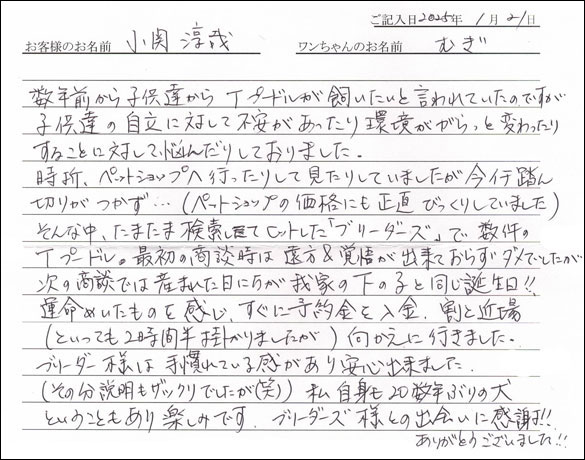 ご記入日2025年 1月21日
お客様のお名前 小関淳哉 ワンちゃんのお名前 むぎ
数年前から子供達からTプードルが飼いたいと言われていたのですが
子供達の自立に対して不安があったり環境ががらっと変わったり
することに対して悩んだりしておりました。
時折、ペットショップへ行ったりして見たりしていましたが今イチ踏ん
切りがつかず…(ペットショップの価格にも正直びっくりしていました)
そんな中、たまたま検索してヒットした「ブリーダーズ」で数件の
Tプードル。最初の商談時は遠方&覚悟が出来ておらずダメでしたが
次の商談では産まれた日にちが我家の下の子と同じ誕生日!!
運命めいたものを感じ、すぐに予約金を入金、割と近場
(といっても2時間半掛かりましたが)向かえに行きました。
ブリーダー様は手慣れている感があり安心出来ました。
(その分説明もザックリでしたが(笑))私自身も20数年ぶりの犬
ということもあり楽しみです。ブリーダーズ様との出会いに感謝!!
ありがとうございました!!